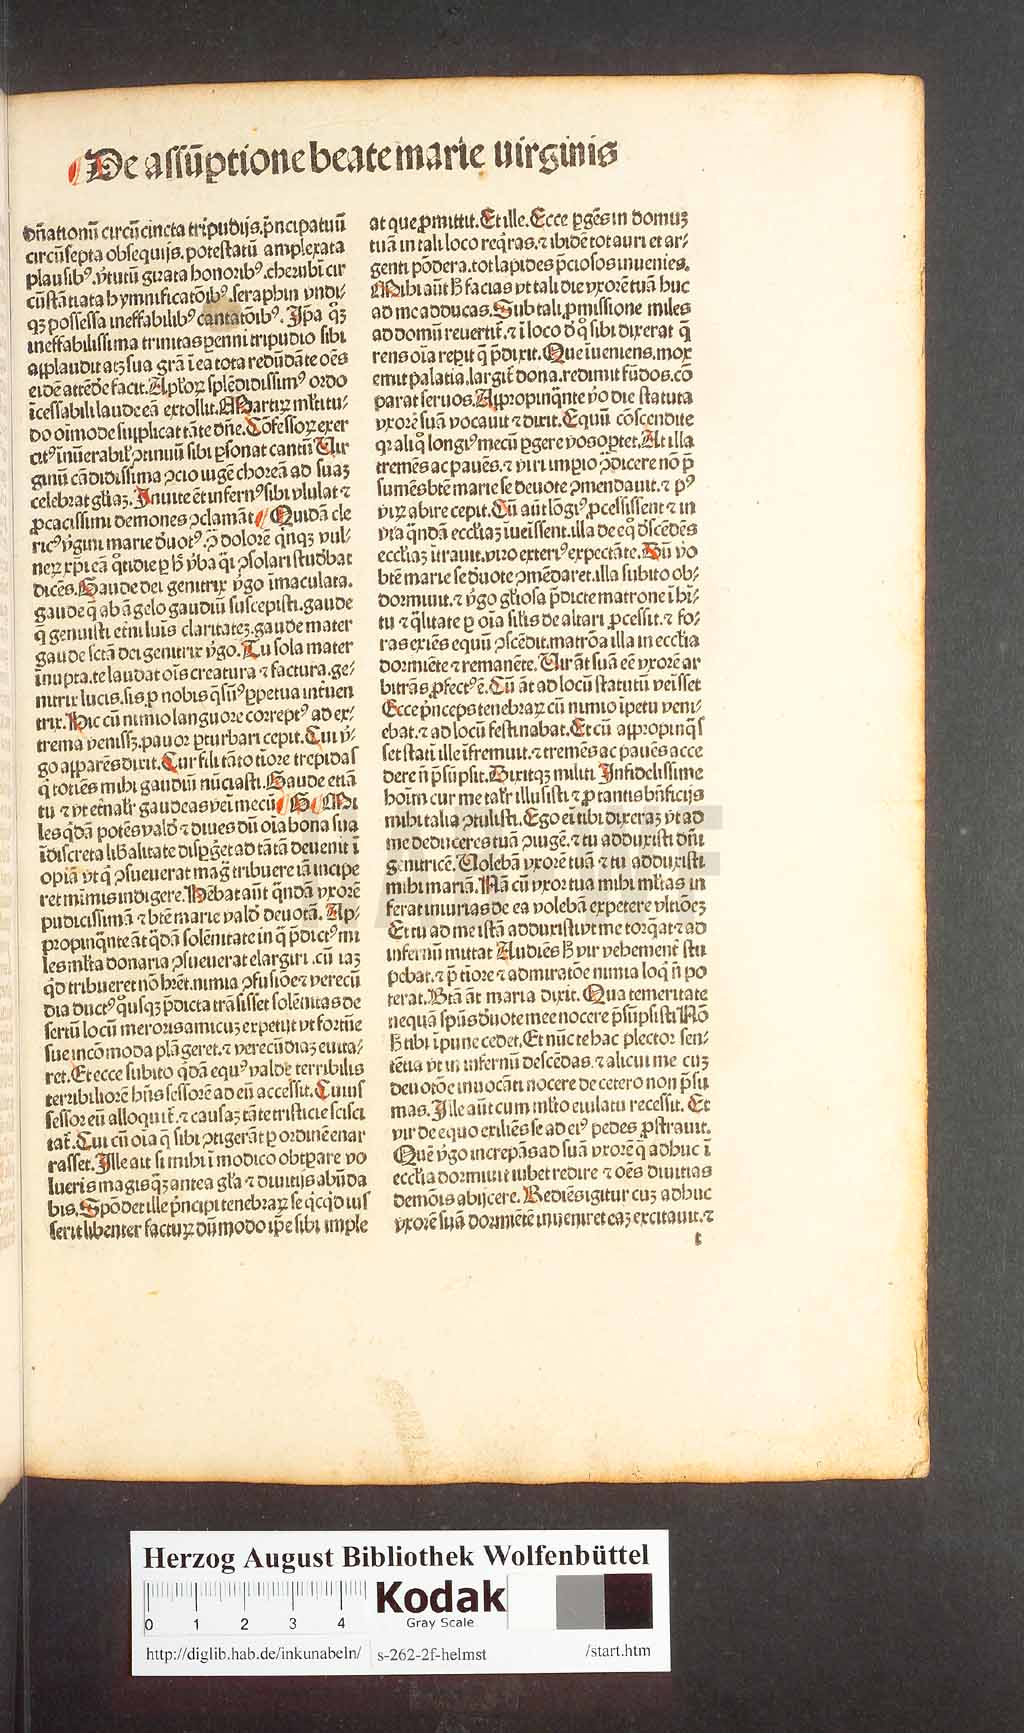 De assūptione beate marie virginis
dn̄ationū circūcincta tripudijs. pn̄cipatuū
circūsepta obsequijs. potestatū amplexata
plausibꝰ. v̓tutū girata honoribꝰ. cherubī cir
cūstātiata hymnificatōibꝰ. seraphin vndi-
qꝫ possessa ineffabilibꝰ cantatōibꝰ. Ip̄a qͦꝫ
ineffabilissima trinitas ꝑenni tripudio sibi
applaudit atqꝫ sua grā ī ea tota redūdāte oēs
eidē attēde̓ facit. Apl̓oꝝ splēdidissimꝰ ordo
īcessabili laude eā extollit. Martirꝝ ml̓titu-
do oīmode supplicat tāte dn̄e. Cōfessoꝝ exer
citꝰ īnūerabil̓ ꝯtinuū sibi ꝑsonat cantū Vir
ginū cādidissima ꝯcio iugē choreā ad suaꝫ
celebrat gl̓iaꝫ. Inuite ēt infernꝰ sibi vlulat ⁊
ꝓcacissimi demones ꝯclamāt Quidā cle
ricꝰ v̓gini marie d̓uotꝰ. ꝓ dolorē qͥnqꝫ vul-
neꝝ xp̄i eā qͦtidie ꝑ hͦ v̓ba qͣsi ꝯsolari stud̓bat
dicēs. Gaude dei genitrix v̓go īmaculata.
gaude q̄ ab āgelo gaudiū suscepisti. gaude
q̄ genuisti et̓ni luīs claritateꝫ. gaude mater
gaude sctā dei genitrix v̓go. Tu sola mater
īnupta. te laudat oīs creatura ⁊ factura. ge-
nitrix lucis. sis ꝓ nobis qͣsumꝰ ꝑpetua interuen
trix. Hic cū nimio languore correptꝰ ad ex-
trema venissꝫ. pauor ꝑturbari cepit. Cui v̓-
go apparēs dixit. Cur fili tāto tīore trepidas
q̄ totiēs mihi gaudiū nūciasti. Gaude etiā
tu ⁊ vt et̓nal̓r gaudeas veī mecū Mi
les qͥdā potēs vald̓ ⁊ diues dū oīa bona sua
īdiscreta lib̓alitate disꝑg̓et ad tātā deuenit ī
opiā vt qͥ ꝯsueuerat mag̓ tribuere iā incipe
ret minimis indigere. Hēbat aūt qͣndā vxorē
pudicissimā ⁊ btē marie vald̓ deuotā. Ap-
propinqͣnte āt qͣdā solēnitate in q̄ p̄dictꝰ mi
les ml̓ta donaria ꝯsueuerat elargiri. cū iaꝫ
qͥd tribueret nō hr̄et. nimia ꝯfusiōe ⁊ verecū
dia ductꝰ qͦusqꝫ p̄dicta trāsisset solēnitas de
sertū locū meroris amicuꝫ expetijt vt fortūe
sue incōmoda plāgeret. ⁊ verecūdiaꝫ euita-
ret. Et ecce subito qͥdā equꝰ valde terribilis
terribiliorē hn̄s sessorē ad eū accessit. Cuius
sessor eū alloquit̄. ⁊ causaꝫ tāte tristicie scisci
tat̄. Cui cū oīa q̄ sibi ꝯtigerāt ꝑ ordinē enar
rasset. Ille ait si mihi ī modico obtꝑare vo
lueris magis qͣꝫ antea gl̓a ⁊ diuitijs abūda
bis. Spōdet ille pn̄cipi tenebraꝝ se qͥcqͥd ius
serit libenter facturꝝ dūmodo ip̄e sibi imple
at que ꝓmittit. Et ille. Ecce ꝑgēs in domuꝫ
tuā in tali loco reqͥras. ⁊ ibidē tot auri et ar-
genti pōdera. tot lapides p̄ciosos inuenies.
Mihi aūt hͦ facias vt tali die vxorē tuā huc
ad me adducas. Sub tali ꝓmissione miles
ad domū reuertit̄. ⁊ ī loco d̓ q̄ sibi dixerat q̄
rens oīa reꝑit q̄ p̄dixit. Que īueniens. mox
emit palatia. largit̄ dona. redimit fūdos. cō
parat seruos. Appropinqͣnte v̓o die statuta
vxorē suā vocauit ⁊ dixit. Equū cōscendite
qꝛ aliqͦ longiꝰ mecū ꝑgere vos oꝑtet. At illa
tremēs ac pauēs. ⁊ viri imꝑio ꝯtradicere nō p̄
sumēs btē marie se deuote ꝯmendauit. ⁊ pꝰ
virꝝ abire cepit. Cū aūt lōgiꝰ ꝓcessissent ⁊ in
via qͣndā eccl̓iaꝫ īueissent. illa de eqͦ d̓scēdēs
eccl̓iaꝫ ītrauit. viro exteriꝰ expectāte. Dū v̓o
btē marie se d̓uote ꝯmēdaret. illa subito ob-
dormiuit. ⁊ v̓go gl̓iosa p̄dicte matrone ī hī-
tu ⁊ qͣlitate ꝑ oīa sil̓is de altari ꝓcessit. ⁊ fo-
ras exiēs equū ꝯscēdit. matrōa illa in eccl̓ia
dormiēte ⁊ remanēte. Vir āt suā eē vxorē ar
bitrās ꝓfectꝰ ē. Cū āt ad locū statutū veīsset
Ecce pn̄ceps tenebraꝝ cū nimio īpetu veni-
ebat. ⁊ ad locū festinabat. Et cū appropinqͣs
set statī ille īfremuit. ⁊ tremēs ac pauēs acce
dere n̄ p̄sūpsit. Dixitqꝫ militi Infidelissime
hoīm cur me tal̓r illusisti ⁊ ꝓ tantis bn̄ficijs
mihi talia ꝯtulisti. Ego ei tibi dixeraꝫ vt ad
me deduceres tuā ꝯiugē. ⁊ tu adduxisti dn̄i
genitricē. Volebā vxorē tuā ⁊ tu adduxisti
mihi mariā. Nā cū vxor tua mihi ml̓tas in
ferat iniurias de ea volebā expetere vltiōeꝫ
Et tu ad me istā adduxisti vt me torq̄at ⁊ ad
infernū mittat Audiēs hͦ vir vehement̓ stu
pebat. ⁊ p̄ tīore ⁊ admiratōe nimia loqͥ n̄ po
terat. Btā āt maria dixit. Qua temeritate
nequā spūs d̓uote mee nocere p̄sūpsisti Nō
hͦ tibi īpune cedet. Et nūc te hac plector sen-
tētia vt in infernū descēdas. ⁊ alicui me cuꝫ
deuotōe inuocāti nocere de cetero non p̄su
mas. Ille aūt cum ml̓to eiulatu recessit. Et
vir de equo exiliēs se ad eiꝰ pedes ꝓstrauit.
Quē v̓go increpās ad suā vxorē q̄ adhuc ī
eccl̓ia dormiuit iubet redire ⁊ oēs diuitias
demōis abijcere. Rediēs igitur cuꝫ adhuc
vxorē suā dormiētē inueniret eaꝫ excitauit. ⁊
t
HAB WF
Herzog August Bibliothek Wolfenbüttel
0 1 2 3 4
Kodak
Gray Scale
http://diglib.hab.de/inkunabeln/ s-262-2f-helmst /start.htm